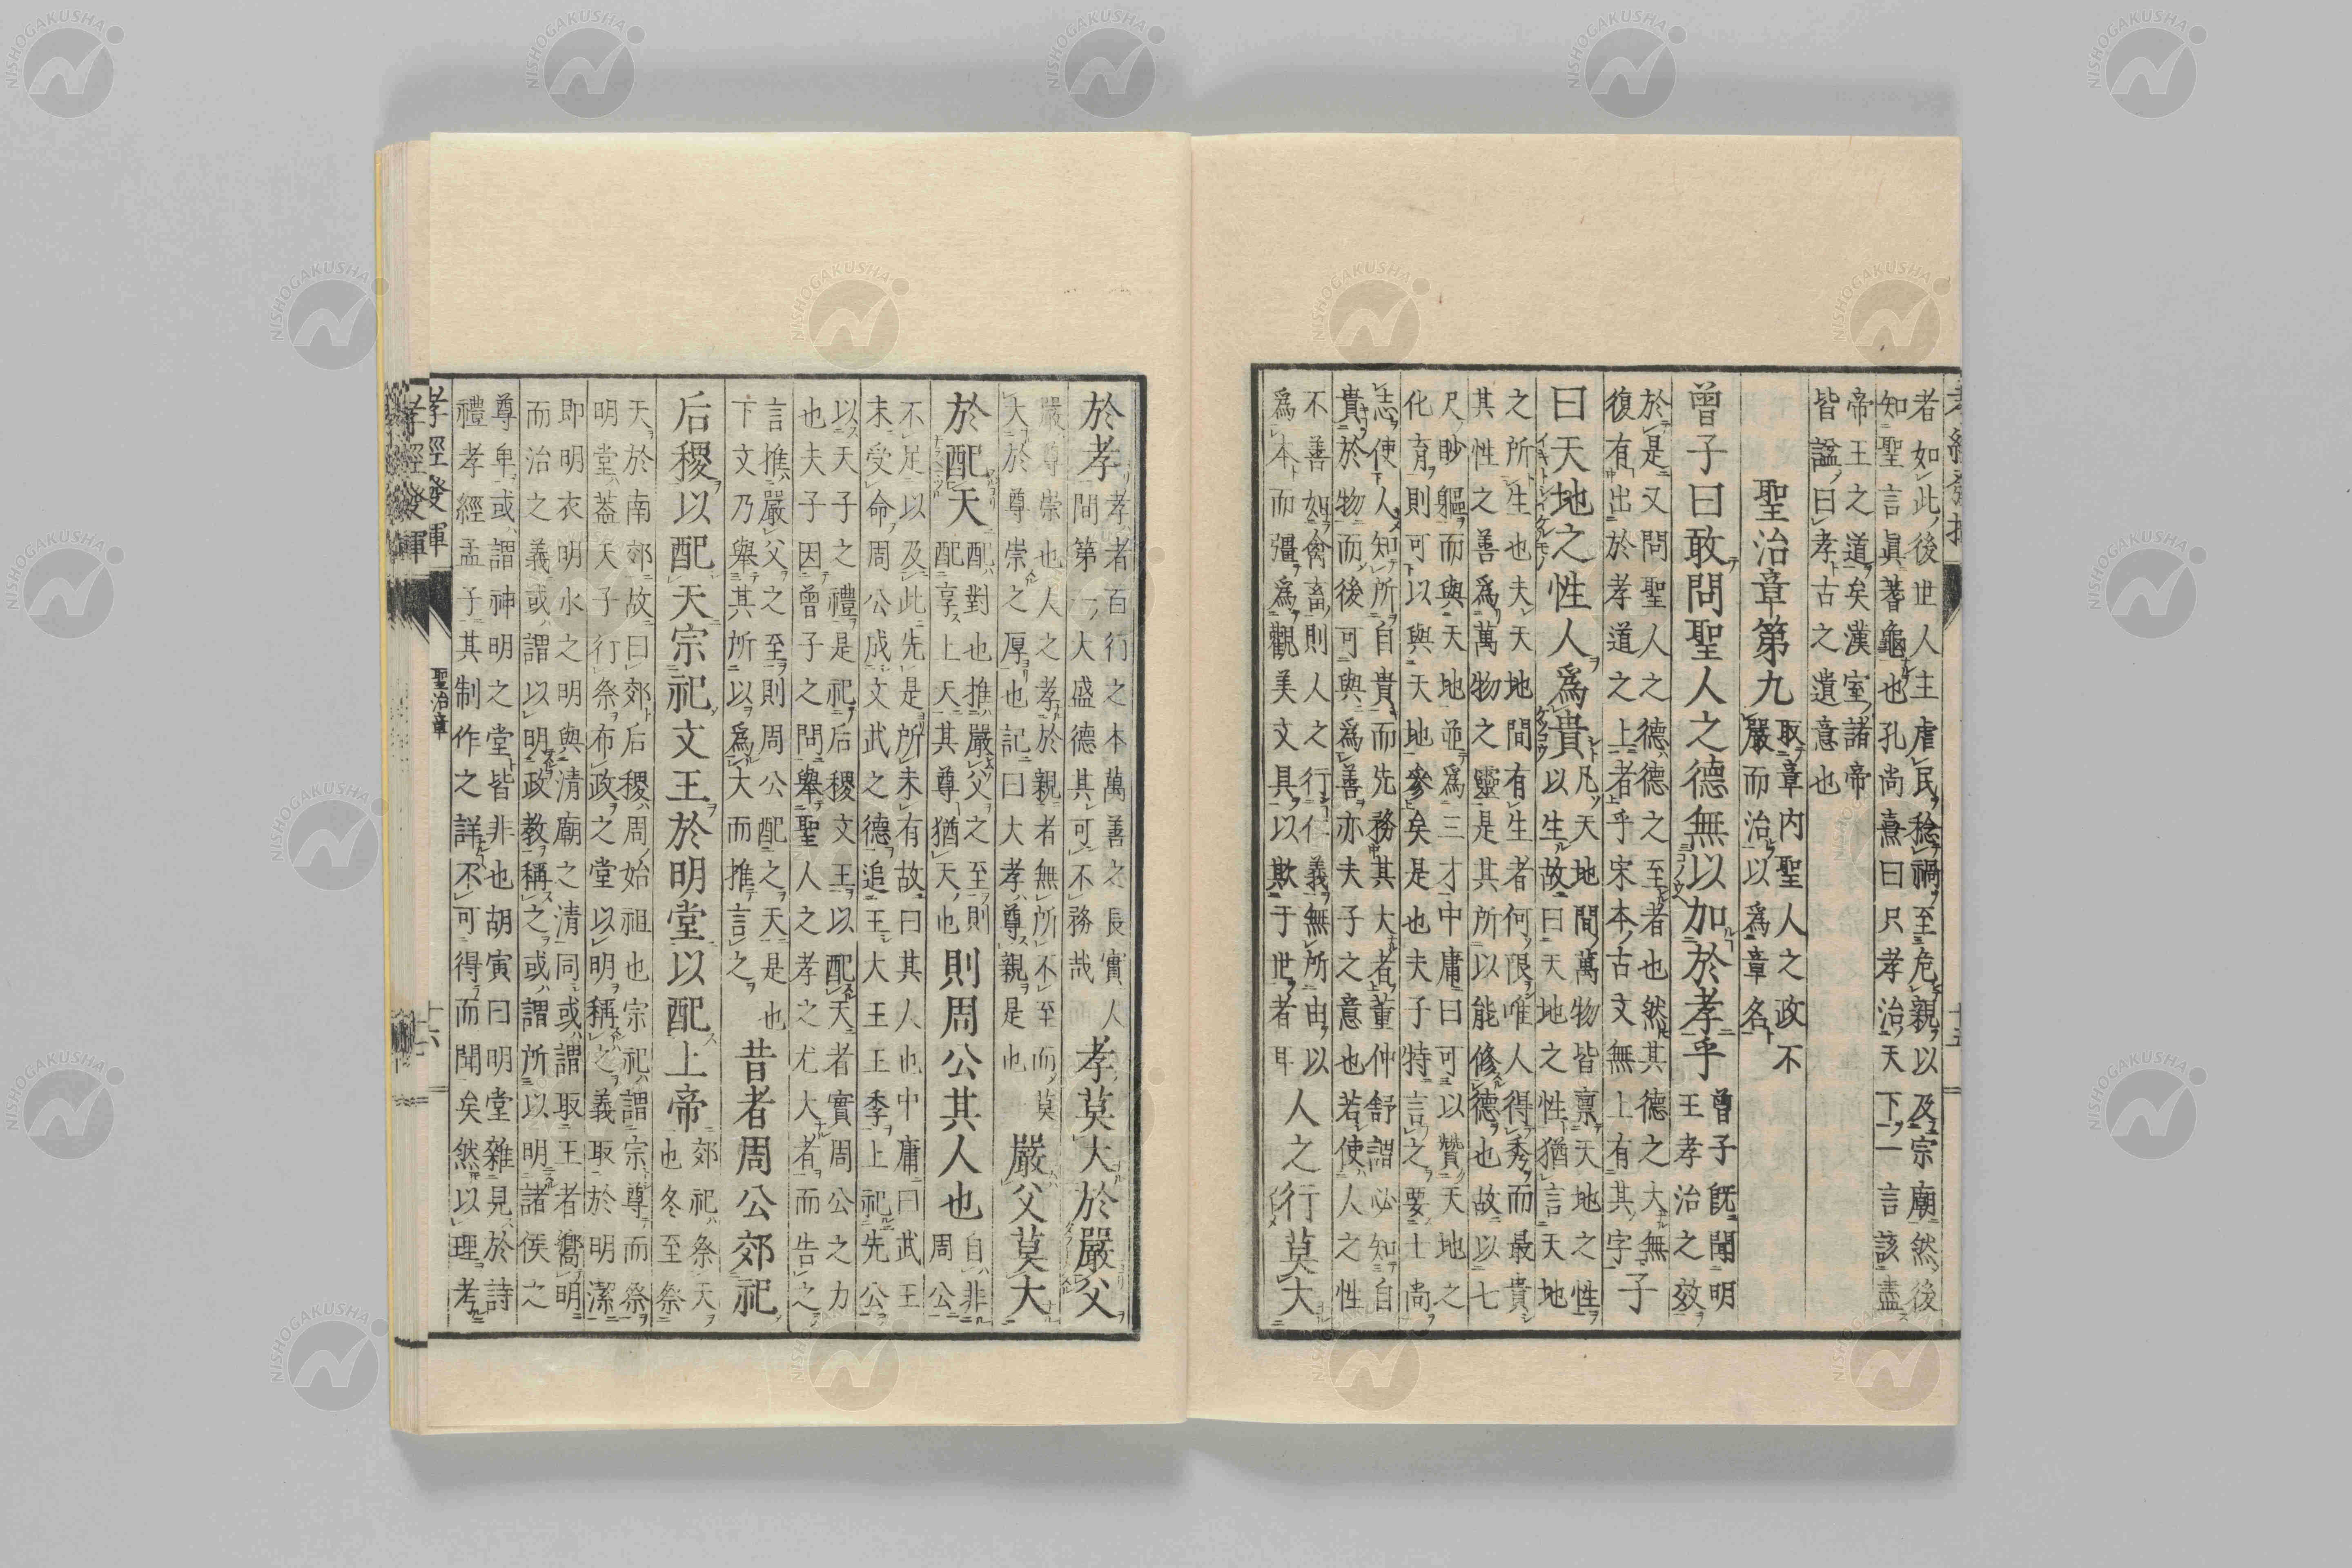 者如此後世人主虐民稔禍至危親以及宗廟然後
知聖言眞蓍龜也孔尚熹曰只孝治天下一言該盡
帝王之道矣漢室諸帝
皆諡曰孝古之遺意也
聖治章第九
取章內聖人之政不
嚴而治以爲章名
曾子曰敢問聖人之德無以加於孝乎
曾子旣聞明
王孝治之效
於是又問聖人之德德之至者也然其德之大無
復有出於孝道之上者乎宋本古文無上有其字
子
曰天地之性人爲貴
凡天地間萬物皆禀天地之性
以生故曰天地之性猶言天地
之所生也夫天地間有生者何限唯人得秀而最貴
其性之善爲萬物之靈是其所以能修德也故以七
尺眇軀而與天地並爲三才中庸曰可以贊天地之
化育則可以與天地參矣是也夫子特言之要士尚
志使人知所自貴而先務其大者董仲舒謂必知自
貴於物而後可與爲善亦夫子之意也若使人之性
不善如禽畜則人之行仁義無所由以
爲本而彊爲觀美文具以欺于世者耳
人之行莫大
於孝
孝者百行之本萬善之長實人
間第一大盛德其可不務哉
孝莫大於嚴父
嚴尊崇也人之孝於親者無所不至而莫
大於尊崇之厚也記曰大孝尊親是也
嚴父莫大
於配天
配對也推嚴父之至則
配享上天其尊猶天也
則周公其人也
自非
周公
不足以及此先是所未有故曰其人也中庸曰武王
末受命周公成文武之德追王大王王季上祀先公
以天子之禮是祀后稷文王以配天者實周公之力
也夫子因曾子之問舉聖人之孝之尤大者而告之
言推嚴父之至則周公配之天是也
下文乃舉其所以爲大而推言之
昔者周公郊祀
后稷以配天宗祀文王於明堂以配上帝
郊祀祭天
也冬至祭
天於南郊故曰郊后稷周始祖也宗祀謂宗尊而祭
明堂葢天子行祭布政之堂以明稱之義取於明潔
即明衣明水之明與清廟之清同或謂取王者嚮明
而治之義或謂以明政教稱之或謂所以明諸侯之
尊卑或謂神明之堂皆非也胡寅曰明堂雜見於詩
禮孝經孟子其制作之詳不可得而聞矣然以理考
孝經發揮
聖治章
十六